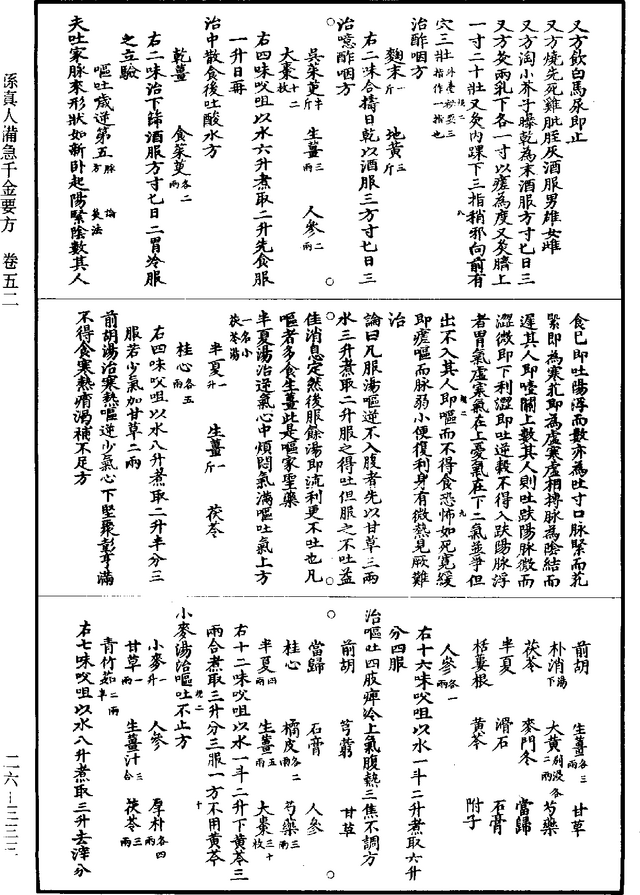 又方飲白馬尿即止
又方燒先死雞肶胵灰酒服男雄女雌
又方淘小芥子曝乾為末酒服方寸匕日三
又方灸兩乳下各一寸以瘥為度又灸臍上
一寸二十壯又灸內踝下三指稍邪向前有
穴三壯 外臺秘要三指作一指也
治酢咽方
麴末一斤 地黃三斤
右二味合擣日乾以酒服三方寸匕日三
治噫酢咽方
吳茱萸半斤 生薑三兩 人參二兩
大棗十二枚
右四味㕮咀以水六升煮取二升先食服
一升日再
治中散食後吐酸水方
乾薑 食茱萸各二兩
右二味治下篩酒服方寸匕日二胃冷服
之立驗
嘔吐噦逆第五 脉論 方 灸法
夫吐家脉來形狀如新卧起陽緊陰數其人
食已即吐陽浮而數亦為吐寸口脉緊而芤
緊即為寒芤即為虛寒虛相搏脉為陰結而
遲其人即噎關上數其人則吐趺陽脉微而
澀微即下利澀即吐逆穀不得入趺陽脉浮
者胃氣虛寒氣在上憂氣在下二氣並爭但
出不入其人即嘔而不得食恐怖如死寬緩
即瘥嘔而脉弱小便復利身有微熱見厥難
治
論曰凡服湯嘔逆不入腹者先以甘草三兩
水三升煮取二升服之得吐但服之不吐益
佳消息定然後服餘湯即流利更不吐也凡
嘔者多食生薑此是嘔家聖藥
半夏湯治逆氣心中煩悶氣滿嘔吐氣上方
一名小茯苓湯
半夏一升 生薑一斤 茯苓
桂心各五兩
右四味㕮咀以水八升煮取二升半分三
服若少氣加甘草二兩
前胡湯治寒熱嘔逆少氣心下堅聚彭亨滿
不得食寒熱消渴補不足方
前胡 生薑各三兩 甘草
朴消下湯 大黃別浸各二兩 芍藥
茯苓 麥門冬 當歸
半夏 滑石 石膏
栝蔞根 黃芩 附子
人參各一兩
右十六味㕮咀以水一斗二升煮取六升
分四服
治嘔吐四肢痺冷上氣腹熱三焦不調方
前胡 芎藭 甘草
當歸 石膏 人參
桂心 橘皮各二兩 芍藥三兩
半夏四兩 生薑五兩 大棗三十枚
右十二味㕮咀以水一斗二升下黃芩三
兩合煮取三升分三服一方不用黃芩
小麥湯治嘔吐不止方
小麥一升 人參 厚朴各四兩
甘草一兩 生薑汁三合 茯苓三兩
青竹茹二兩半
右七味㕮咀以水八升煮取三升去滓分
孫真人備急千金要方 卷五二
二六—三三三